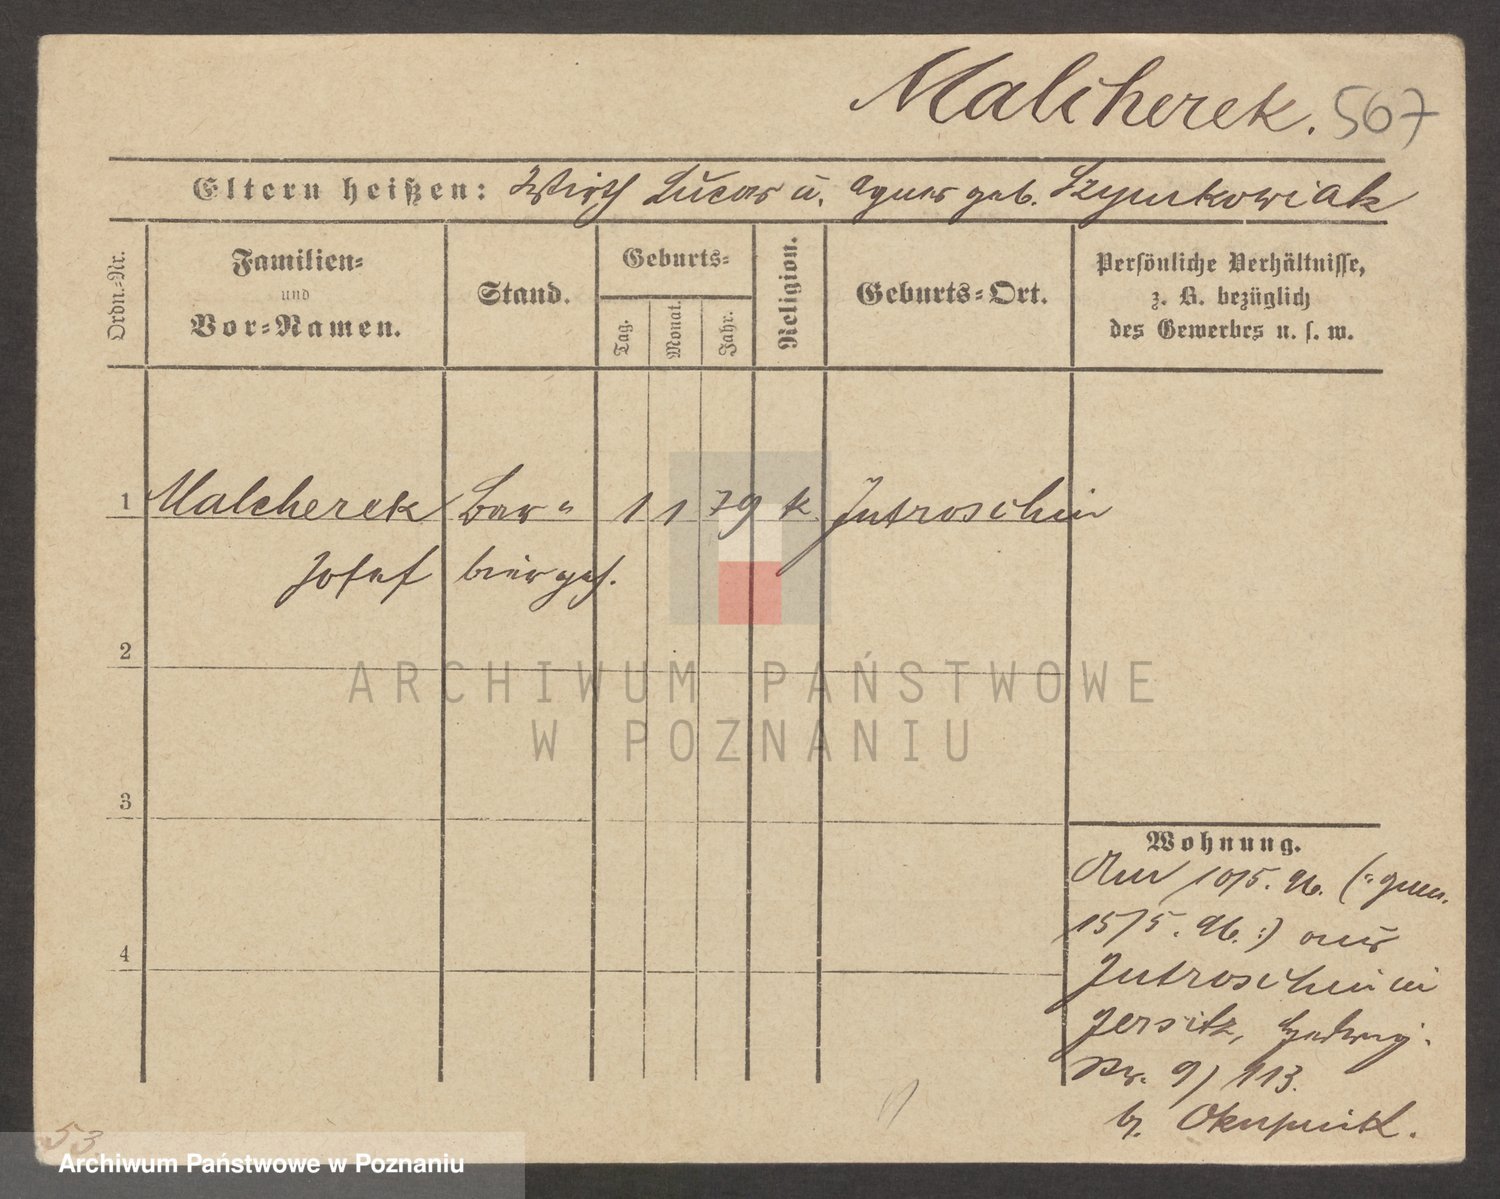 Malcherek. 567
Eltern heißen: Wirth Lucas u. Agnes geb. Szymkowiak
Ordn.-Nr.
Familien-
und
Vor-Namen.
Stand.
Geburts-
Tag.
Monat.
Jahr.
Religion.
Geburts-Ort.
Persönliche Verhältnisse,
z. B. bezüglich
des Gewerbes u. s. w.
1 Malcherek Bar- 1 1 79 k Jutroschin
Josef biergeh.
2
3
4
ARCHIWUM PAŃSTWOWE
W POZNANIU
Wohnung.
Am 10/5. 96. (: gem.
15/5. 96. :) aus
Jutroschin in
Jersitz, Hedwig-
Str. 9) 113.
b. Okupnik.
53
Archiwum Państwowe w Poznaniu